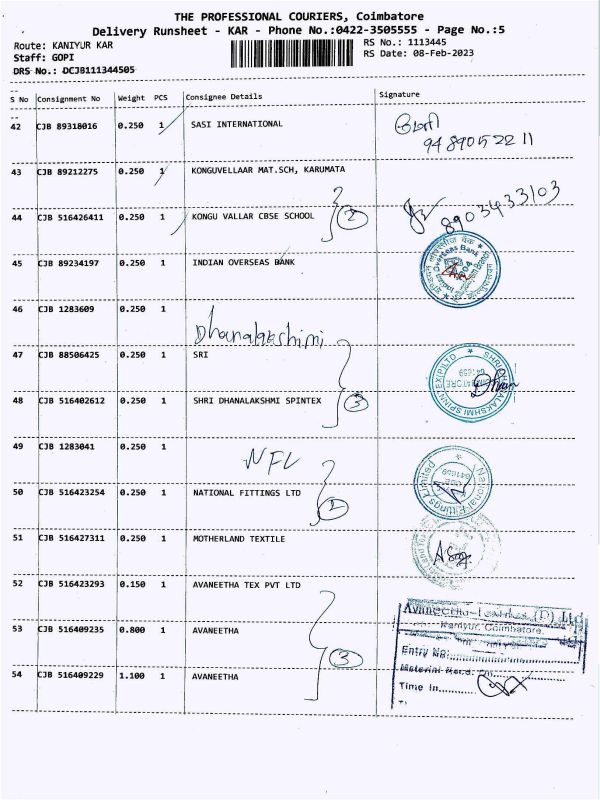 THE PROFESSIONAL COURIERS, Coimbatore
Delivery Runsheet - KAR - Phone No.:0422-3505555 - Page No.:5
Route: KANIYUR KAR
RS No.: 1113445
Staff: GOPI
RS Date: 08-Feb-2023
DRS No.: DCJB111344505
S No Consignment No Weight PCS Consignee Details Signature
42 CJB 89318016 0.250 1 SASI INTERNATIONAL
94 89052211
43 CJB 89212275 0.250 1 KONGUVELLAAR MAT.SCH, KARUMATA
8903433103
44 CJB 516426411 0.250 1 KONGU VALLAR CBSE SCHOOL 2
45 CJB 89234197 0.250 1 INDIAN OVERSEAS BANK
Overseas Bank
46 CJB 1283609 0.250 1
Dhanalakshimi
47 CJB 88506425 0.250 1 SRI
48 CJB 516402612 0.250 1 SHRI DHANALAKSHMI SPINTEX 3
SHRI DHANALAKSHMI SPINNTEX (P) LTD
COIMBATORE
641659
Dhan
49 CJB 1283041 0.250 1
NFL
50 CJB 516423254 0.250 1 NATIONAL FITTINGS LTD 2
National Fittings Limited
641659
51 CJB 516427311 0.250 1 MOTHERLAND TEXTILE
52 CJB 516423293 0.150 1 AVANEETHA TEX PVT LTD
53 CJB 516409235 0.800 1 AVANEETHA
54 CJB 516409229 1.100 1 AVANEETHA
3
Avaneetha Textiles (P) Ltd
Kaniyur, Coimbatore.
Entry No:
Material Recd. On
Time In